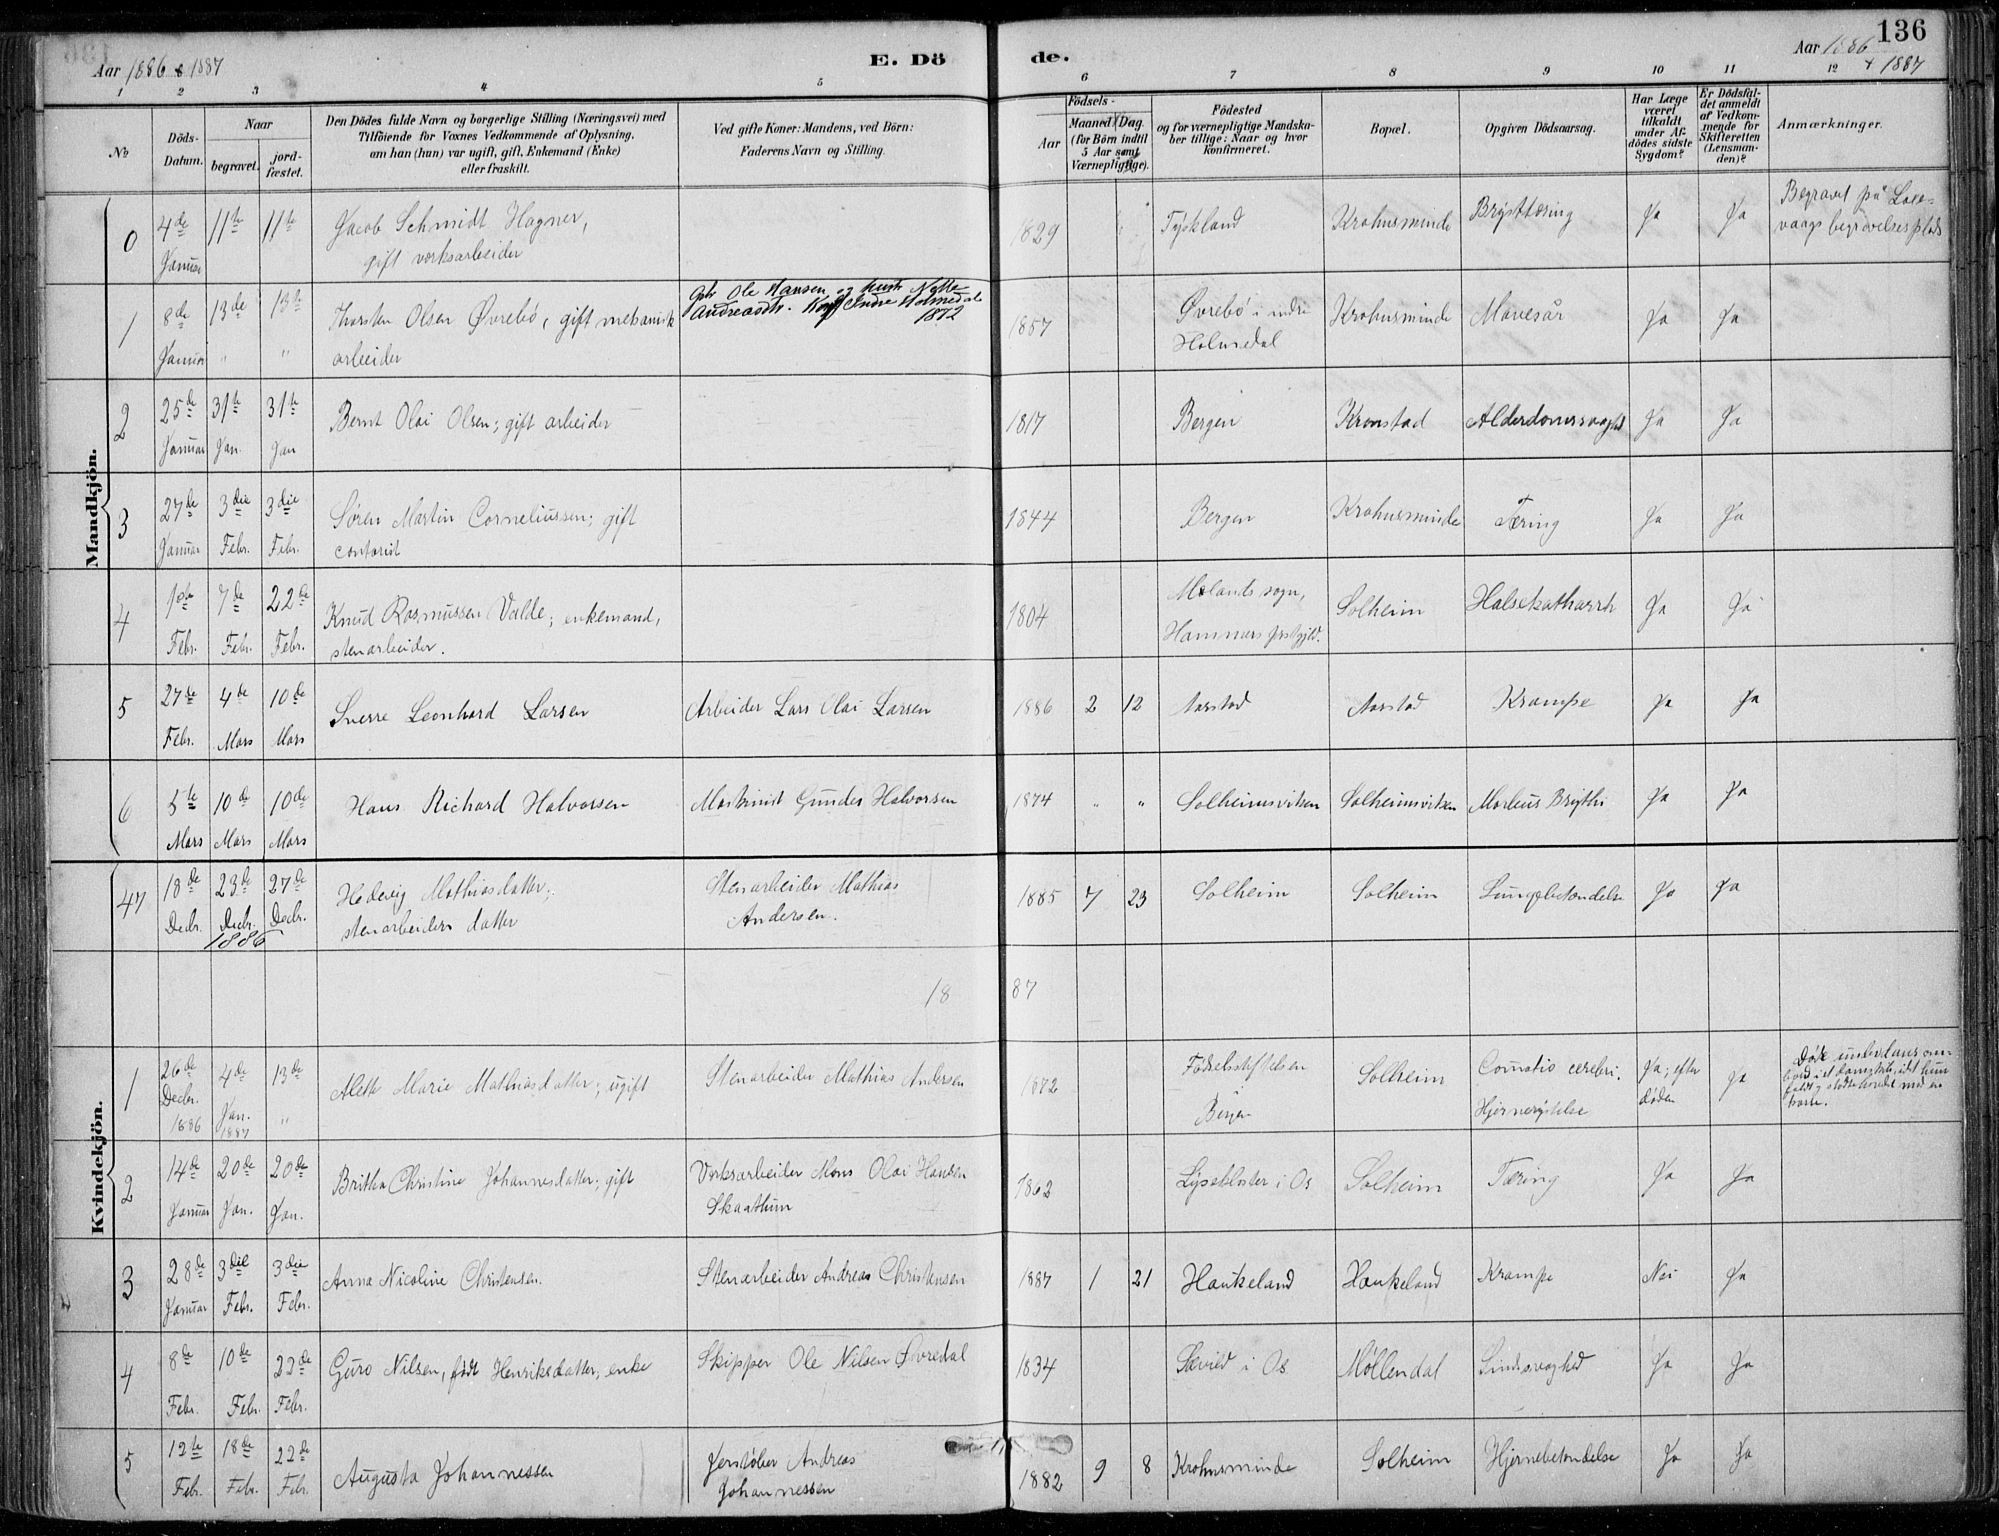 136
Aar 1886 & 1887
E. Dö
de.
Aar 1886 & 1887
1 2 3 4 5 6 7 8 9 10 11 12
No
Döds-Datum.
Naar
begravet.
jord-fæstet.
Den Dödes fulde Navn og borgerlige Stilling (Næringsvei) med
Tilföiende for Voxnes Vedkommende af Oplysning,
om han (hun) var ugift, gift, Enkemand (Enke)
eller fraskilt.
Ved gifte Koner: Mandens, ved Börn:
Faderens Navn og Stilling.
Födsels-
Aar
Maaned Dag.
(for Börn indtil
5 Aar samt
Værnepligtige).
Födested
og for værnepligtige Mandska-
ber tillige: Naar og hvor
konfirmeret.
Bopæl.
Opgiven Dödsaarsag.
Har Læge
været
tilkaldt
under Af-
dödes sidste
Sygdom?
Er Dödsfal-
det anmeldt
af Vedkom-
mende for
Skifteretten
(Lensman-
den)?
Anmærkninger.
Mandkjön.
0 4de Januar 11te 11te Jacob Schmidt Hagner,
gift verksarbeider
1829 Tyskland Krohnsminde Brysttæring Ja Ja Begravet på Loxe-
vaags begravelsesplads
1 8de Januar 13de " 13de " Thorsten Olsen Øvrebö, gift mekanisk
arbeider
Ole Hansen og hustr
Andreasdtr. Konf Indre Holmedal
1872
1857 Øvrebö i indre
Holmedal Krohnsminde Mavesår Ja Ja
2 25de Januar 31te Jan. 31te Jan Bernt Olai Olsen; gift arbeider
1817 Bergen Kronstad Alderdomssvaghd Ja Ja
3 27de Januar 3die Febr. 3die Febr. Sören Martin Corneliussen; gift
contorist
1844 Bergen Krohnsminde Tæring Ja Ja
4 1ste Febr. 7de Febr. 22de Febr. Knud Rasmussen Valde; enkemand,
stenarbeider.
1804 Mælands sogn,
Hammers prstgjld. Solheim Halsekatharrh Ja Ja
5 27de Febr. 4de Mars 10de Mars Sverre Leonhard Larsen
Arbeider Lars Olai Larsen
1886 2 12 Aarstad Aarstad Krampe Ja Ja
6 5te Mars 10de Mars 10de Mars Hans Richard Halvorsen
Maskinist Gunder Halvorsen
1874 " " Solheimsviken Solheimsviken Morbus Brigthi Ja Ja
Kvindekjön.
47 18de Decbr. 23de Decbr. 27de Decbr. 1886 Hedevig Mathiasdatter;
stenarbeiders datter
Stenarbeider Mathias
Andersen.
1885 7 23 Solheim Solheim Lungebetændelse Ja Ja
1887
1 26de Decbr. 1886 4de Jan. 1887 13de " Alette Marie Mathiasdatter; ugift
Stenarbeider Mathias Andersen
1872 Fødselsstiftelsen
Bergen Solheim Comotio cerebri.
Hjernerystelse Ja; efter
døden Ja
2 14de Januar 20de Jan. 20de Jan. Britha Christine Johannesdatter; gift
Verksarbeider Mons Olai Hansen
Skaathun
1862 Lysekloster i Os Solheim Tæring Ja Ja
3 28de Januar 3die Febr. 3die Febr. Anna Nicoline Christensen.
Stenarbeider Andreas Christensen
1887 1 21 Haukeland Haukeland Krampe Nei Ja
4 8de Febr. 10de Febr. 22de Febr. Guro Nilsen, født Henriksdatter, enke
Skipper Ole Nilsen Øvredal
1834 Sævild i Os Møllendal Sindssvaghed Ja Ja
5 12te Febr. 18de Febr. 22de Febr. Augusta Johannessen
Jernstøber Andreas
Johannessen
1882 9 8 Krohnsminde Solheim Hjernebetændelse Ja Ja